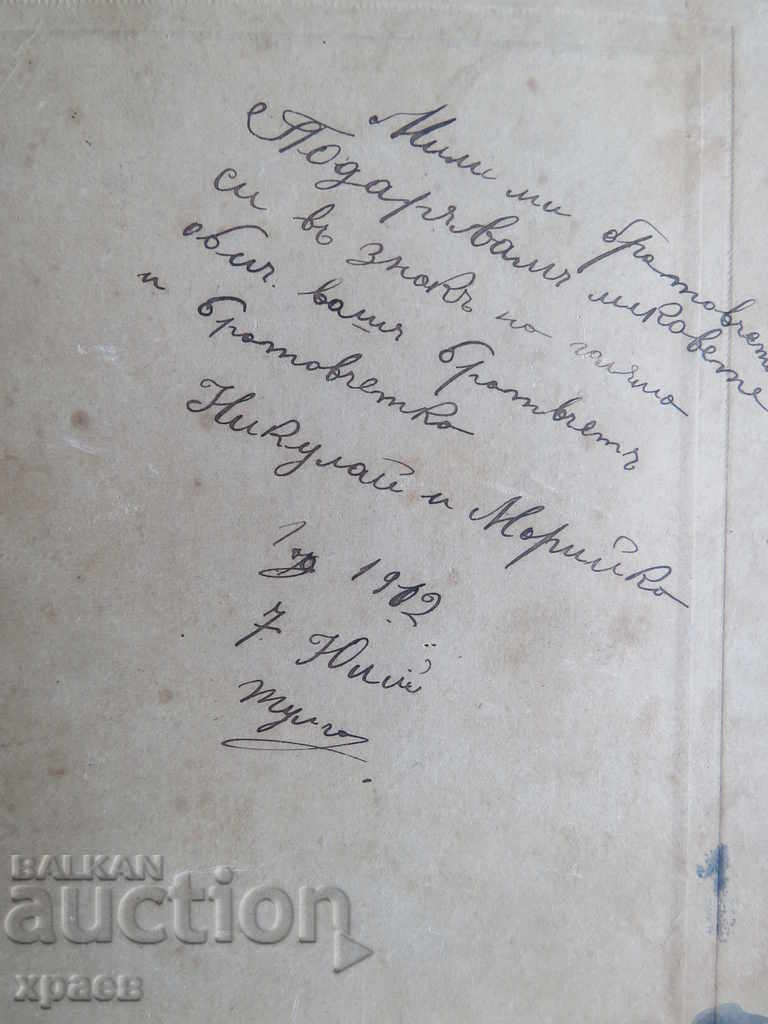 Мили ми братовчета
Подарявамъ ликовете
си въ знокъ по голямо
обич. вашъ братвчетъ
и братовчетко
Никулай и Морийко
1912
7 Юлий
BALKAN
auction
храев